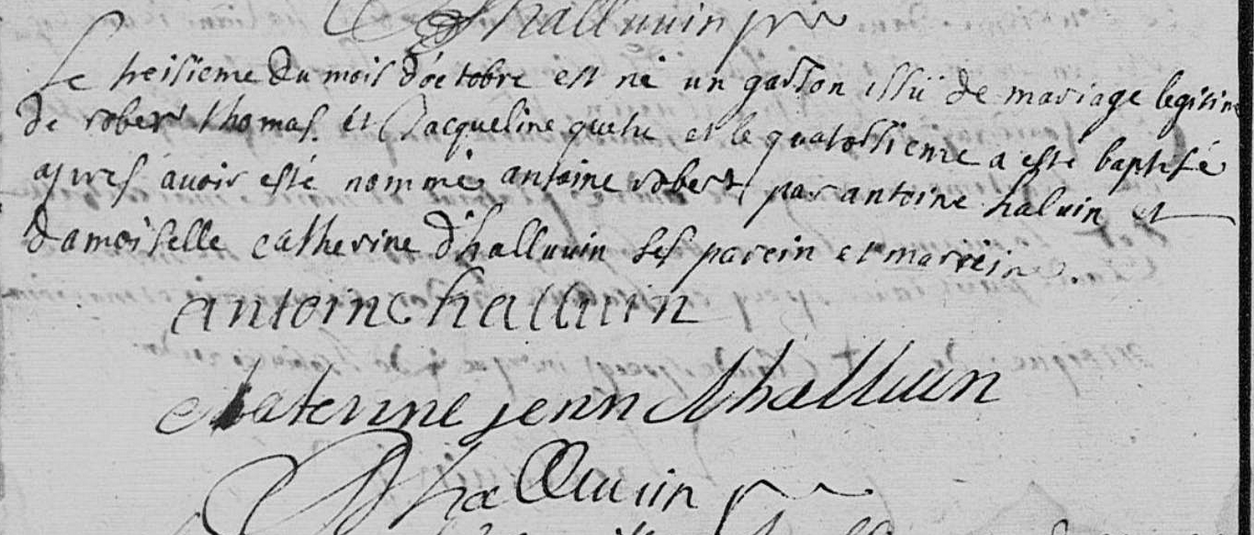 Dhalluuin ptr
Le treisieme du mois d'octobre est né un garson issü de mariage legitime
de robert thomas et Jacqueline quetu et le quatorsieme a esté baptisé
apres avoir esté nommé antoine robert par antoine haluin et
damoiselle catherine d'halluuin ses parein et mareine.
antoine halluuin
Katerinne jenn Dhalluuin
Dhalluuin ptr